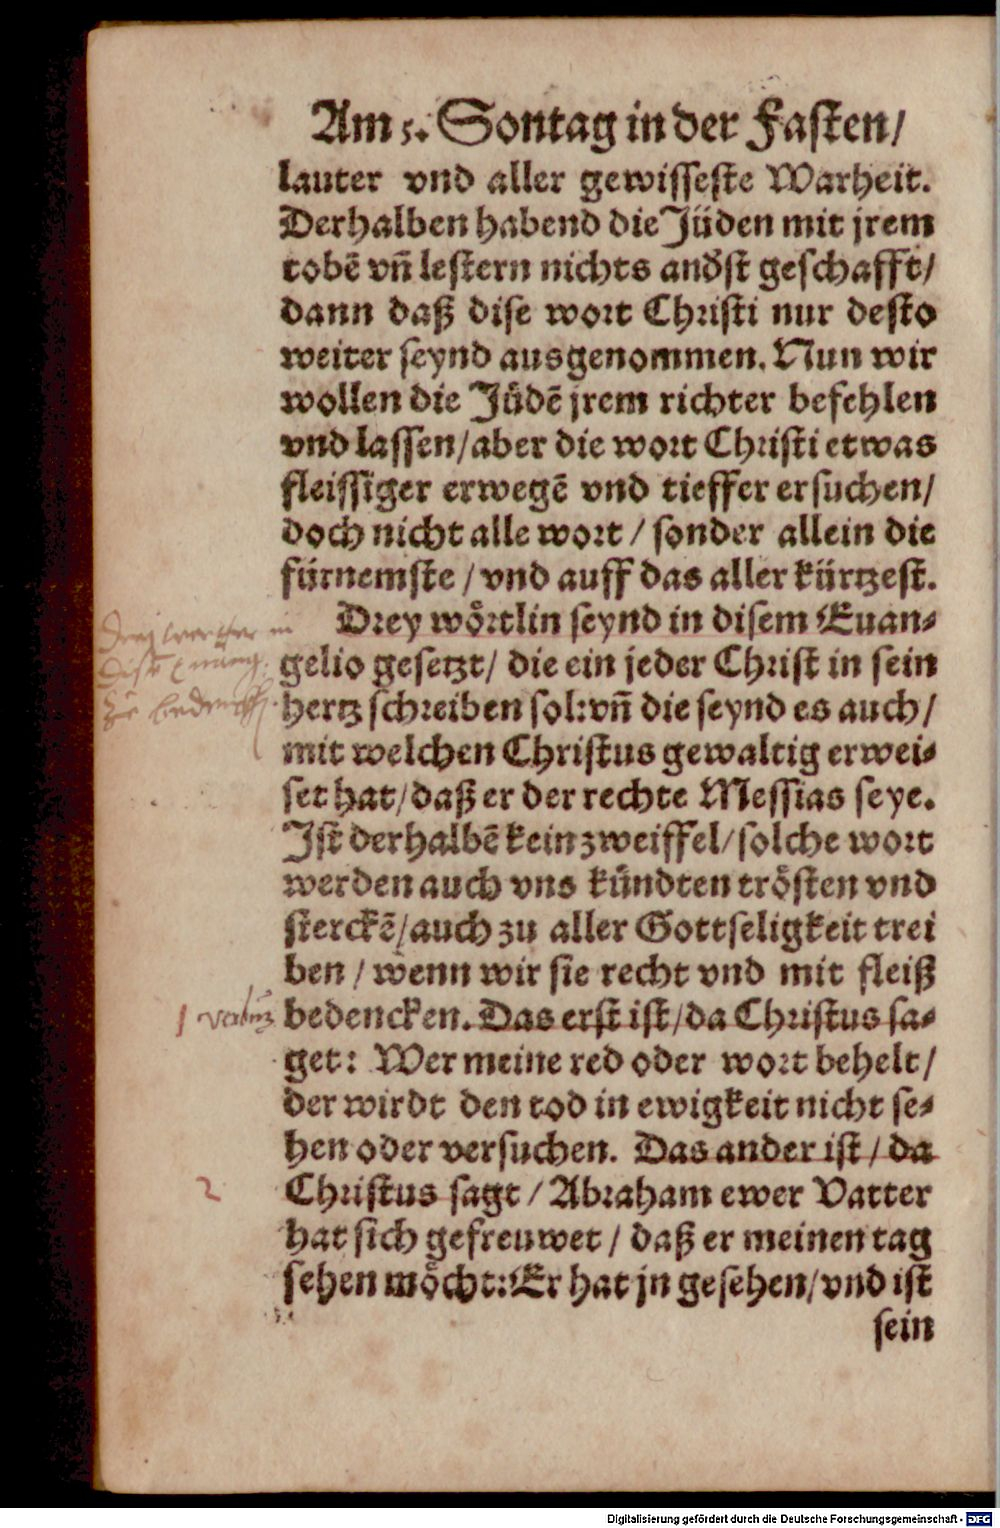 Am 5. Sontag in der Fasten/
lauter vnd aller gewisseste Warheit.
Derhalben habend die Jüden mit jrem
tobē vñ lestern nichts anderst geschafft/
dann daß dise wort Christi nur desto
weiter seynd ausgenommen. Nun wir
wollen die Jüdē jrem richter befehlen
vnd lassen/aber die wort Christi etwas
fleissiger erwegē vnd tieffer ersuchen/
doch nicht alle wort / sonder allein die
fürnemste / vnd auff das aller kürtzest.
Drey wörtlin seynd in disem Euan-
gelio gesetzt/ die ein jeder Christ in sein
hertz schreiben sol:vñ die seynd es auch/
mit welchen Christus gewaltig erwei-
set hat/daß er der rechte Messias seye.
Ist derhalbē kein zweiffel/solche wort
werden auch vns kündten trösten vnd
sterckē/auch zu aller Gottseligkeit trei
ben / wenn wir sie recht vnd mit fleiß
1 verbum
bedencken. Das erst ist/da Christus sa-
get: Wer meine red oder wort behelt/
der wirdt den tod in ewigkeit nicht se-
hen oder versuchen. Das ander ist / da
2
Christus sagt / Abraham ewer Vatter
hat sich gefreuwet / daß er meinen tag
sehen möcht:Er hat jn gesehen/vnd ist
sein
Digitalisierung gefördert durch die Deutsche Forschungsgemeinschaft - DFG